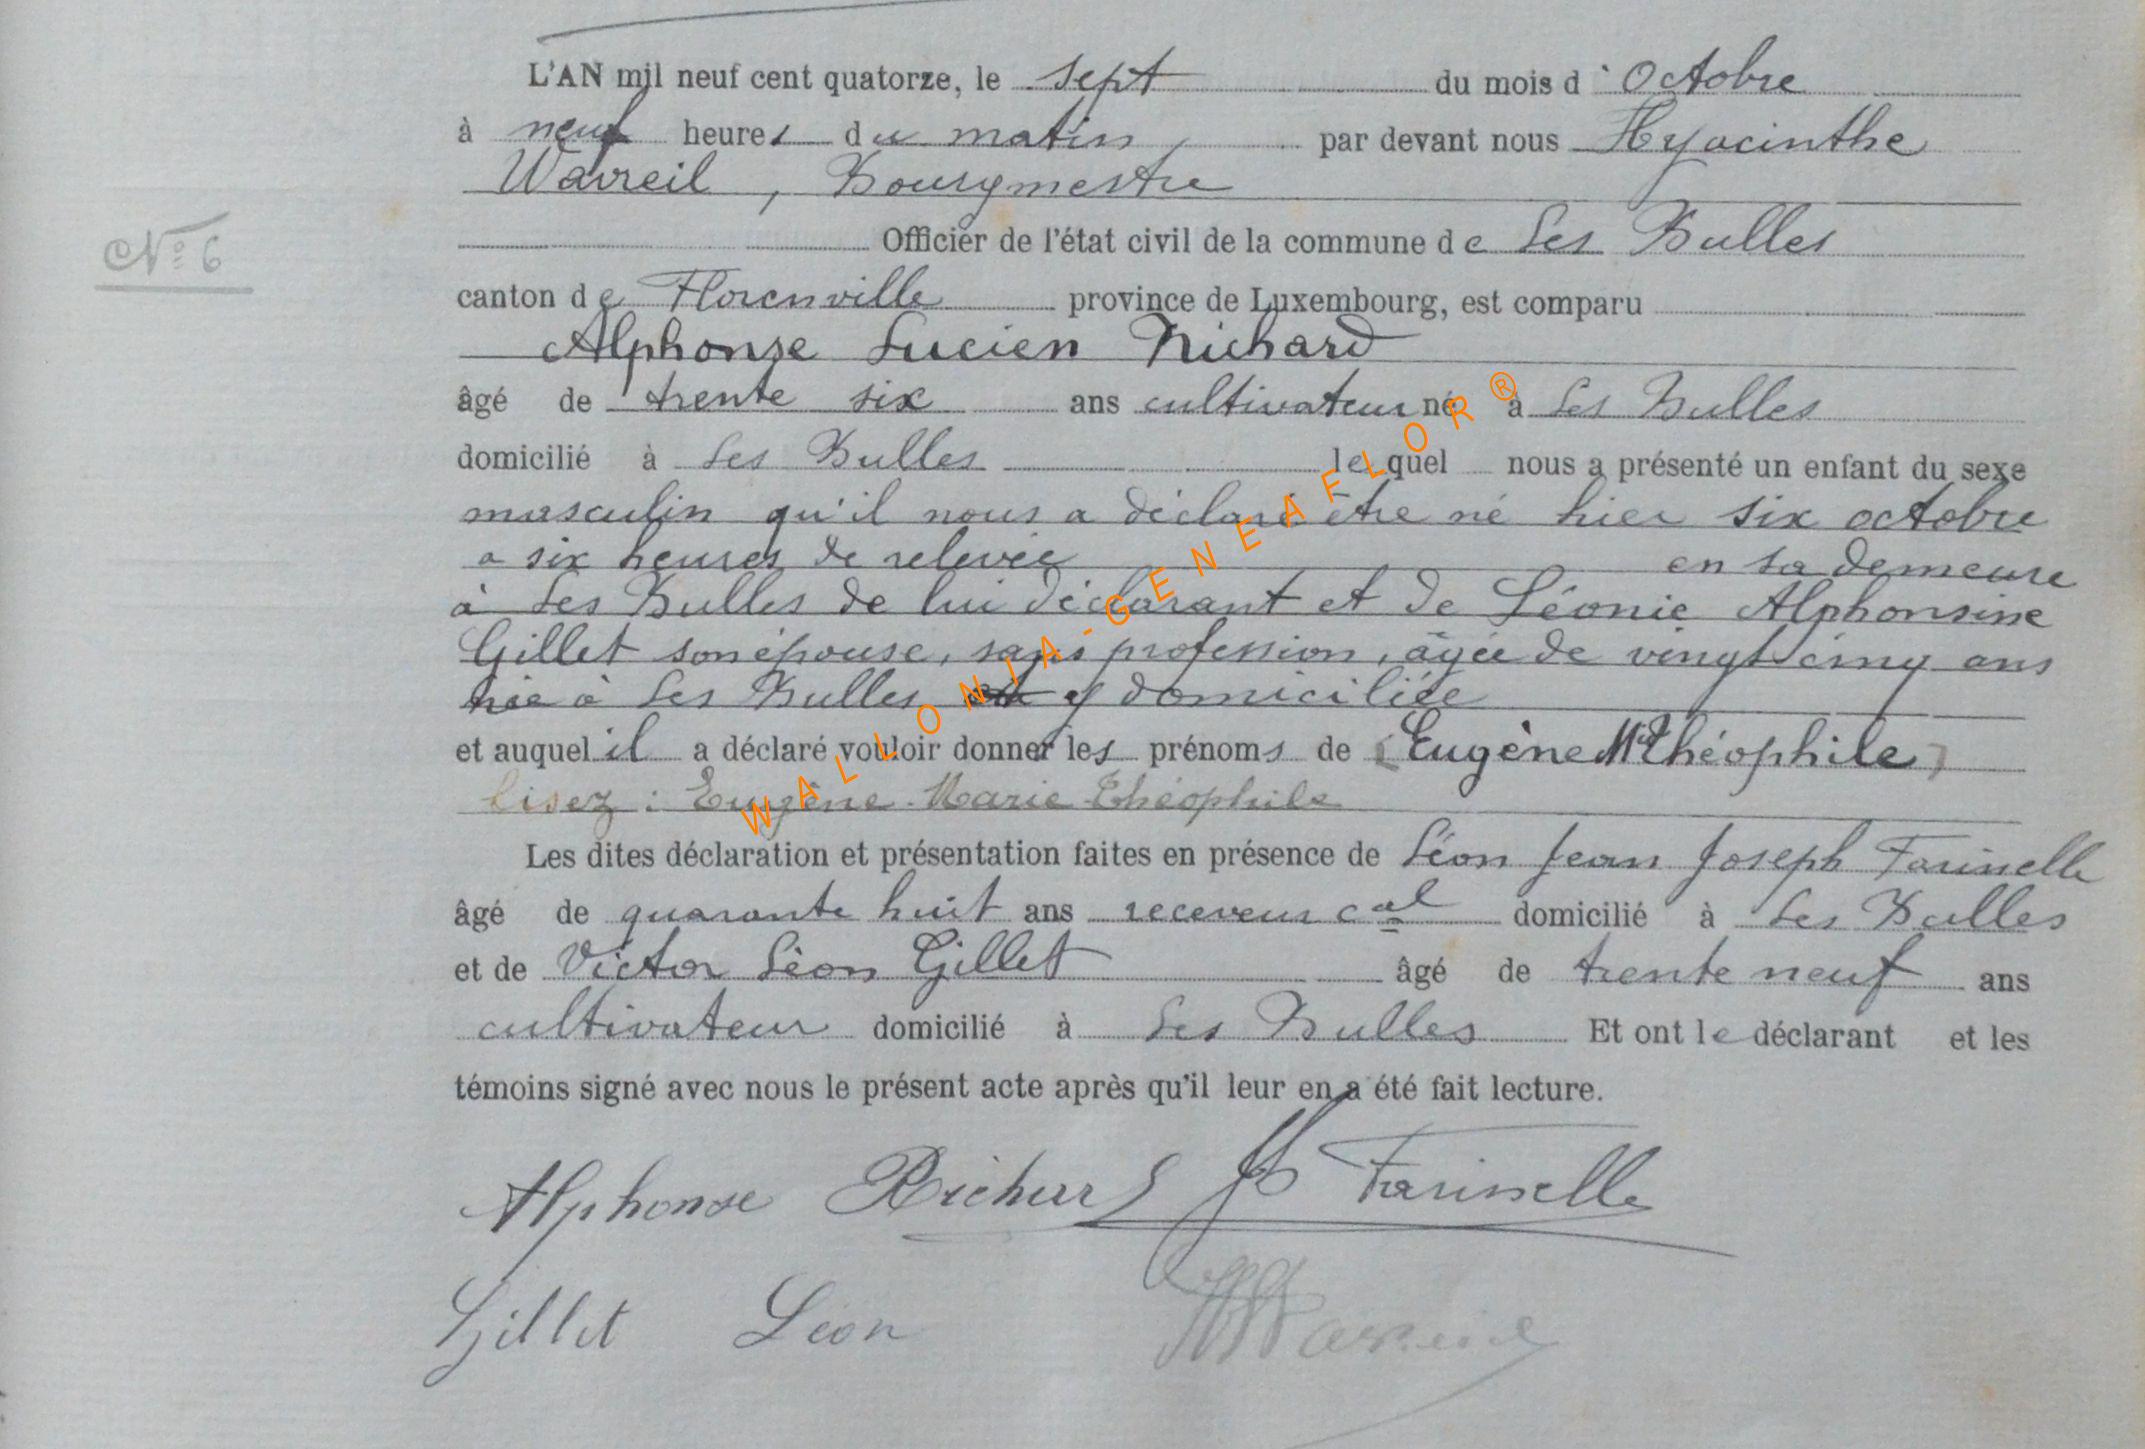 L'AN mil neuf cent quatorze, le sept du mois d'Octobre
à neuf heures du matin, par devant nous Hyacinthe
Wavreil, Bourgmestre
Officier de l'état civil de la commune de Les Bulles
N° 6
canton de Florenville province de Luxembourg, est comparu
Alphonse Lucien Richard
âgé de trente six ans cultivateur né à Les Bulles
domicilié à Les Bulles lequel nous a présenté un enfant du sexe
masculin qu'il nous a déclaré être né hier six octobre
a six heures de relevée en sa demeure
à Les Bulles de lui déclarant et de Léonie Alphonsine
Gillet son épouse, sans profession, âgée de vingt cinq ans
née à Les Bulles y domiciliée
et auquel il a déclaré vouloir donner les prénoms de (Eugène Mie Théophile)
lisez : Eugène Marie Théophile
Les dites déclaration et présentation faites en présence de Léon Jean Joseph Farinelle
âgé de quarante huit ans receveur cal domicilié à Les Bulles
et de Victor Léon Gillet âgé de trente neuf ans
cultivateur domicilié à Les Bulles Et ont le déclarant et les
témoins signé avec nous le présent acte après qu'il leur en a été fait lecture.
Alphonse Richard Farinelle
Gillet Léon HWavreil
WALLONIA-GENEAFLOR®